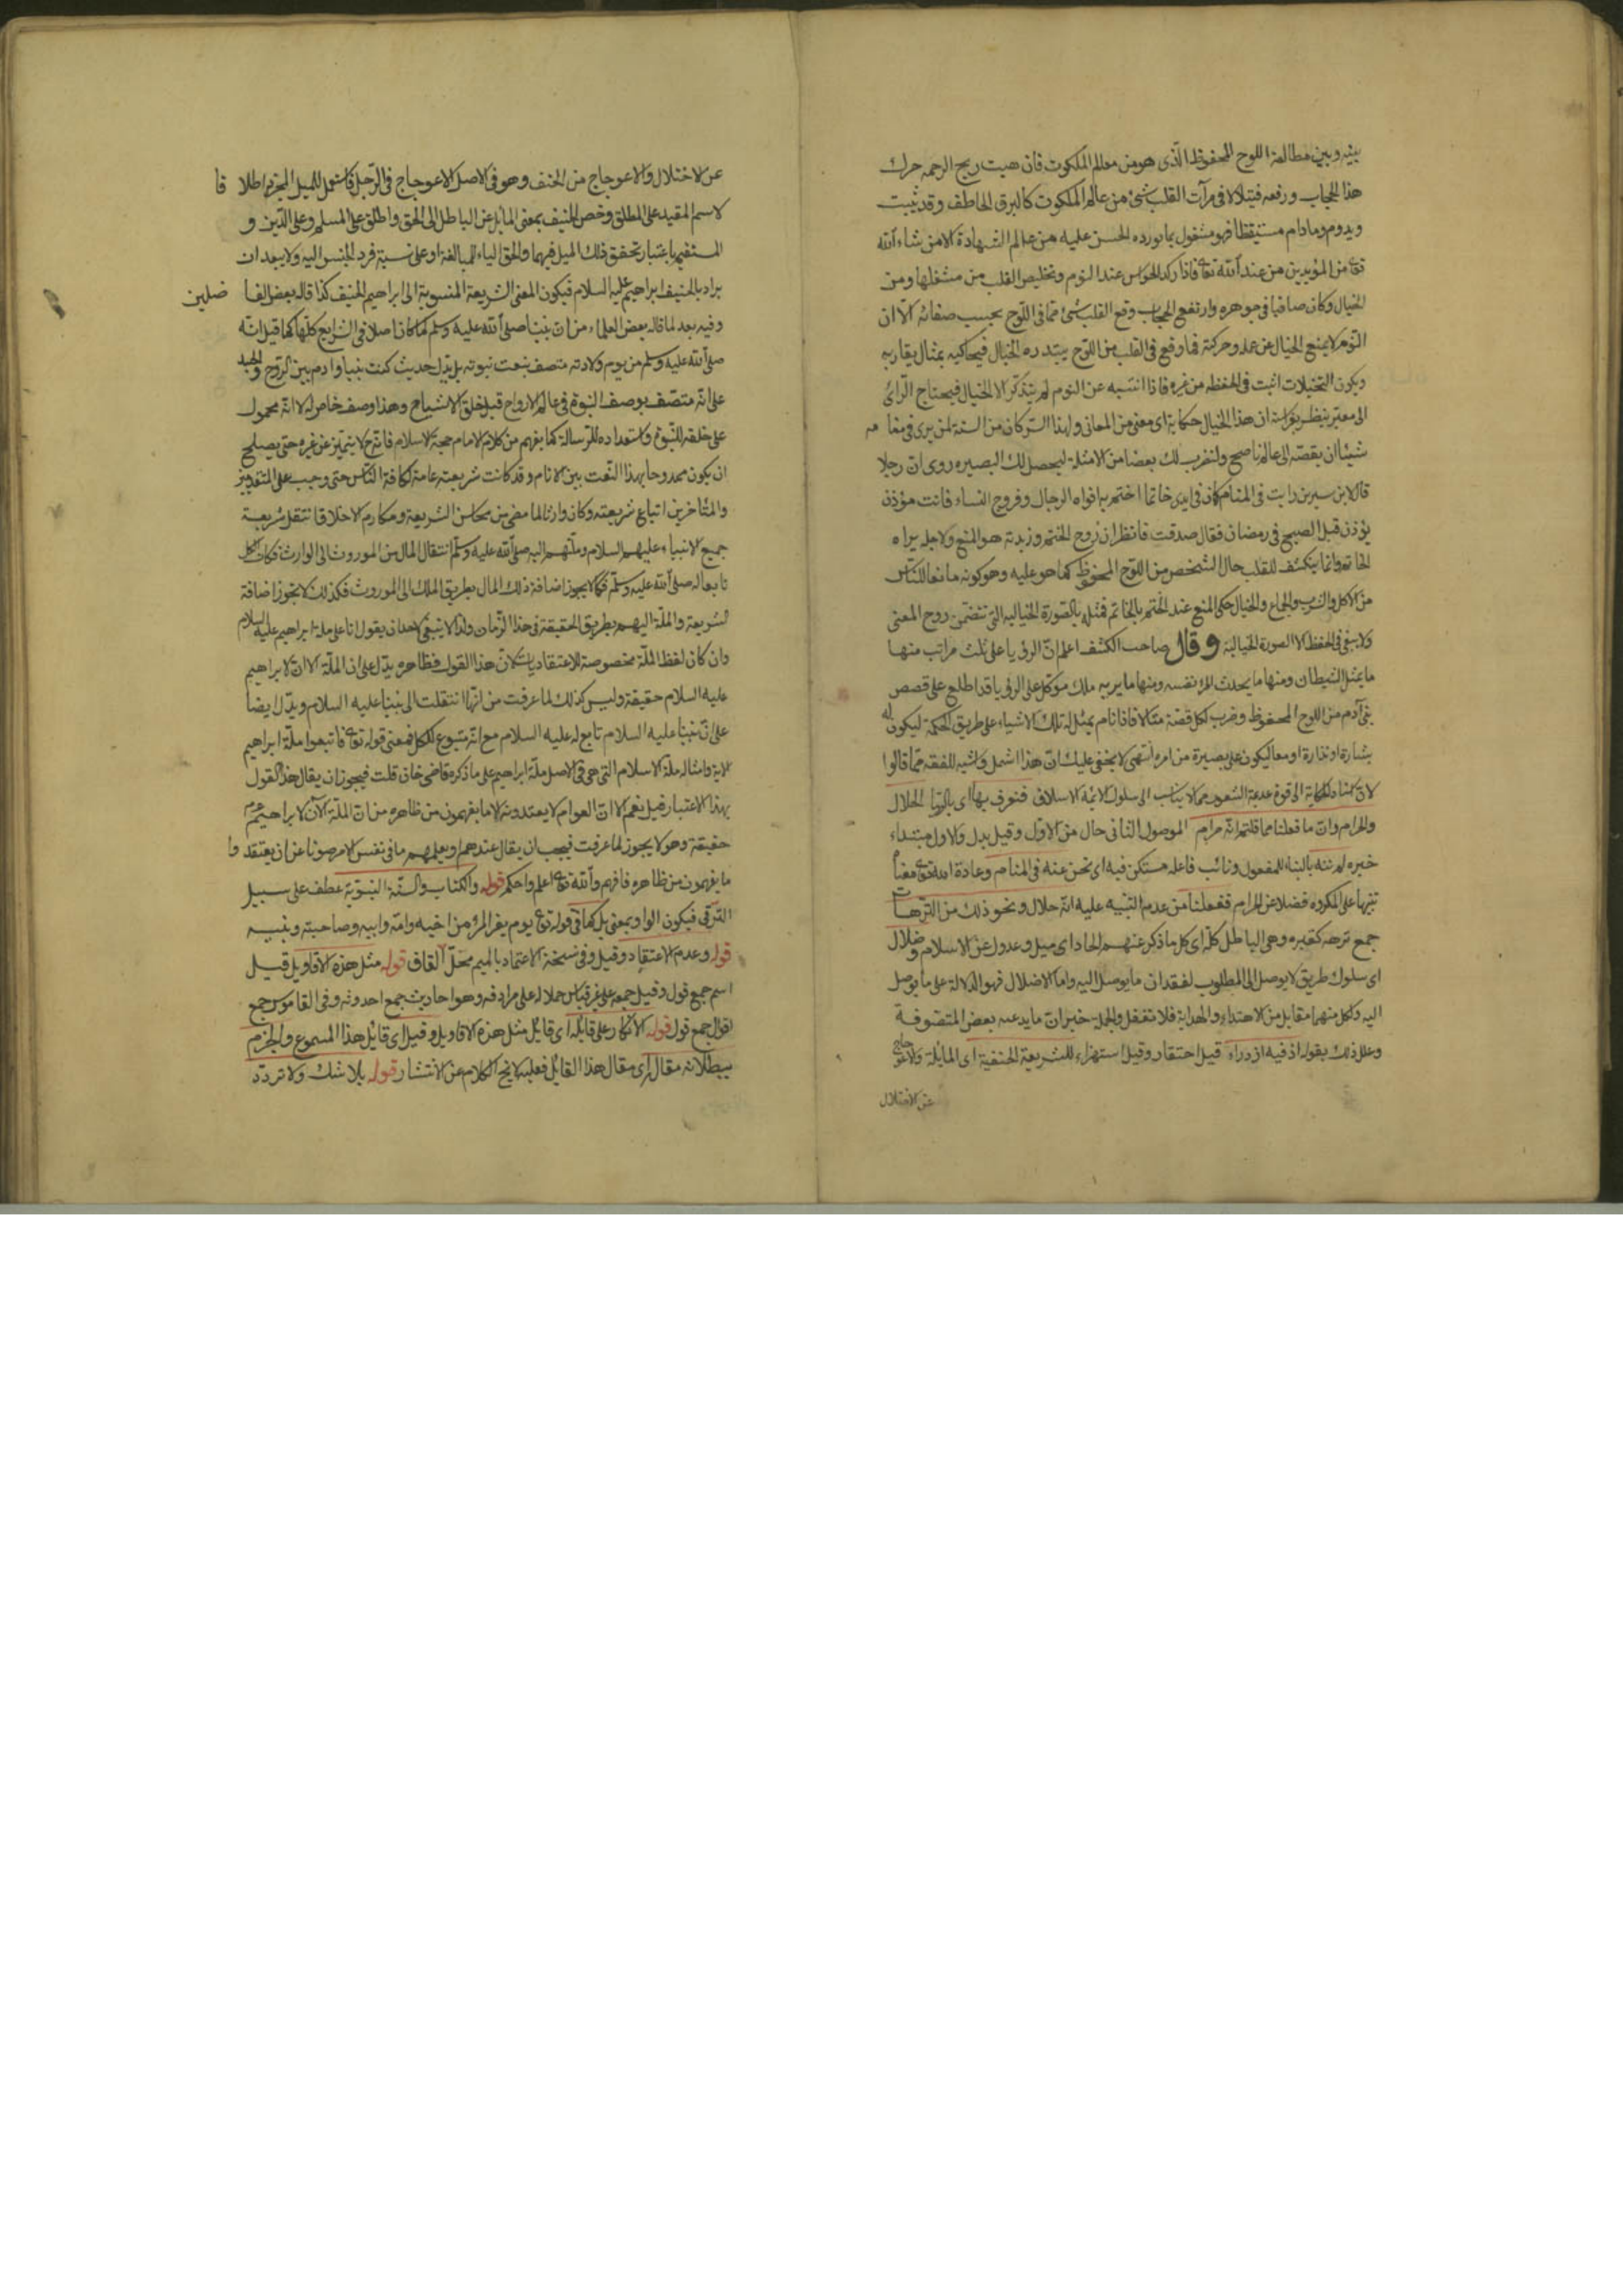 بينه وبين مطالعة اللوح المحفوظ الذى هو من معالم الملكوت فان هبت ريح الرحمة حرك
هذا الحجاب ورفعه فيتلالا فى مرآت القلب شئ من عالم الملكوت كالبرق الخاطف وقد يثبت
ويدوم ومادام مستيقظا فهو مشغول بما تورده الحسن عليه من عالم الشهادة الا من شاء الله
تعالى من المؤيدين من عند الله تعالى فاذا ركد الحواس عند النوم وتخلص القلب من مشغلها ومن
الخيال وكان صافيا فى جوهره وارتفع الحجاب وقع القلب شئ مما فى اللوح بحسب صفائه الا ان
النوم لا يمنع الخيال عن عمله وحركته فما وقع فى القلب من اللوح يبتدره الخيال فيحاكيه بمثال يقاربه
ويكون التخيلات اثبت فى الحفظ من غيره فاذا انتبه عن النوم لم يتذكر الا الخيال فيحتاج الرائى
الى معبر ينظر بفراسته ان هذا الخيال حكاية اى معنى من المعانى ولهذا السر كان من السنة لمن يرى فى منامه
شيئا ان يقصه الى عالم ناصح ولنضرب لك بعضا من الامثلة ليحصل لك البصيره روى ان رجلا
قال لابن سيرين رايت فى المنام كان فى يدى خاتما اختم به افواه الرجال وفروج النساء فانت مؤذن
يؤذن قبل الصبح فى رمضان فقال صدقت فانظر ان روح الختم وزبدته هو المنع ولاجله يراه
الخاتم وانما ينكشف للقلب حال الشخص من اللوح المحفوظ كما هو عليه وهو كونه مانعا للناس
من الاكل والشرب والجماع والخيال حكى المنع عند الختم بالخاتم فمثله بالصورة الخياليه التى تتضمن روح المعنى
ولا يبقى فى الحفظ الا الصورة الخيالية وقال صاحب الكشف اعلم ان الرؤيا على ثلث مراتب منها
ما يمثل الشيطان ومنها ما يحدث المرء نفسه ومنها ما يريه ملك موكل على الرؤيا قد اطلع على قصص
بنى آدم من اللوح المحفوظ وضرب لكل قصة مثالا فاذا نام يمثل له تلك الاشياء على طريق الحكمة ليكون له
بشارة او نذارة او معا ليكون على بصيرة من امره انتهى لا يخفى عليك ان هذا اشمل واشبه للفقه مما قالوا
لان اسناد الحكاية الى قوة عديمة الشعور مما لا يناسب الى سلوك الائمه الاسلاف فنعرف بها اى بالرؤيا الحلال
والحرام وان ما فعلنا مما قلتم انه حرام الموصول الثانى حال من الاول وقيل بدل والاول مبتداء
خبره لم ننه بالبناء للمفعول ونائب فاعله مستكن فيه اى نحن عنه فى المنام وعادة الله تعالى معنا
تنبيهنا على المكروه فضلا عن الحرام ففعلنا من عدم التنبيه عليه انه حلال ونحو ذلك من الترهات
جمع ترهه كقبره وهى الباطل كله اى كل ما ذكر عنهم الحاد اى ميل وعدول عن الاسلام وضلال
اى سلوك طريق لا يوصل الى المطلوب لفقدان ما يوصل اليه واما الاضلال فهو الدلالة على ما يوصل
اليه وكل منهما مقابل من الاهتداء والهداية فلا تغفل والجملة خبر ان ما يدعيه بعض المتصوفة
وعلل ذلك بقوله اذ فيه ازدراء قيل احتقار وقيل استهزاء للشريعة الحنفية اى المايلة والاعوجاج
عن الاختلال
عن الاختلال والاعوجاج من الحنف وهو فى الاصل الاعوجاج فى الرجل فاستعمل للميل المجرد اطلاقا
لاسم المقيد على المطلق وخص الحنيف بمعنى المايل عن الباطل الى الحق واطلق على المسلم وعلى الدين و
المستقيم باعتبار تحقق ذلك الميل فيهما والحق الياء للمبالغة او على نسبة فرد الجنس اليه ولا يبعد ان
يراد بالحنيف ابراهيم عليه السلام فيكون المعنى الشريعة المنسوبة الى ابراهيم الحنيف كذا قاله بعض الفاضلين
وفيه بعد لما قاله بعض العلماء من ان نبينا صلى الله عليه وسلم كما كان اصلا فى الشرايع كلها كما قيل انه
صلى الله عليه وسلم من يوم ولادته متصف بنعت نبوته بل يدل حديث كنت نبيا وادم بين الروح والجسد
على انه متصف بوصف النبوة فى عالم الارواح قبل خلق الاشباح وهذا وصف خاص له لا انه محمول
على خلقه للنبوة واستعداده للرسالة كما يفهم من كلام الامام حجة الاسلام فانه ح لا يتميز عن غيره حتى يصلح
ان يكون ممدوحا بهذا النعت بين الانام وقد كانت شريعته عامة لكافة الناس حتى وجب على المتقدمين
والمتأخرين اتباع شريعته وكان وارثا لما مضى من محاسن الشريعة ومكارم الاخلاق انتقل شريعة
جميع الانبياء عليهم السلام وملتهم اليه صلى الله عليه وسلم انتقال المال من الموروث الى الوارث فكان الكل
تابعا له صلى الله عليه وسلم فكما لا يجوز اضافة ذلك المال بطريق الملك الى الموروث فكذلك لا يجوز اضافة
الشريعة والملة اليهم بطريق الحقيقة فى هذا الزمان ولذا لا ينبغى لاحد ان يقول انا على ملة ابراهيم عليه السلام
وان كان لفظ الملة مخصوصة للاعتقاديات لان هذا القول فظاهره يدل على ان الملة الان لابراهيم
عليه السلام حقيقة وليس كذلك لما عرفت من انها انتقلت الى نبينا عليه السلام ويدل ايضا
على ان نبينا عليه السلام تابع له عليه السلام مع انه متبوع للكل فمعنى قوله تعالى فاتبعوا ملة ابراهيم
الاية وامثاله ملة الاسلام التى هى فى الاصل ملة ابراهيم على ما ذكره قاضى خان قلت فيجوز ان يقال هذا القول
بهذا الاعتبار قيل نعم الا ان العوام لا يعتدونه الا ما يفهمون من ظاهره من ان الملة الآن لابراهيم عم
حقيقة وهو لا يجوز لما عرفت فيجب ان يقال عندهم ويعلمهم ما فى نفس الامر صونا عن ان يعتقدوا
ما يفهمون من ظاهره فافهم والله تعالى اعلم واحكم قوله والكتاب والسنة النبوية عطف على سبيل
الترقى فيكون الواو بمعنى بل كما فى قوله تعالى يوم يفر المرء من اخيه وامه وابيه وصاحبته وبنيه
قوله وعدم الاعتقاد وقيل وفى نسخة الاعتماد بالميم محل القاف قوله مثل هذه الاقاويل قيل
اسم جمع قول وقيل جمعه على غير قياس حملا له على مرادفه وهو احاديث جمع احدوثه وفى القاموس جمع
اقوال جمع قول قوله الانكار على قايله اى قايل مثل هذه الاقاويل وقيل اى قايل هذا المسموع والجزم
ببطلانه مقال اى مقال هذا القايل فعليه لا يخ الكلام عن الانتشار قوله بلا شك ولا تردد